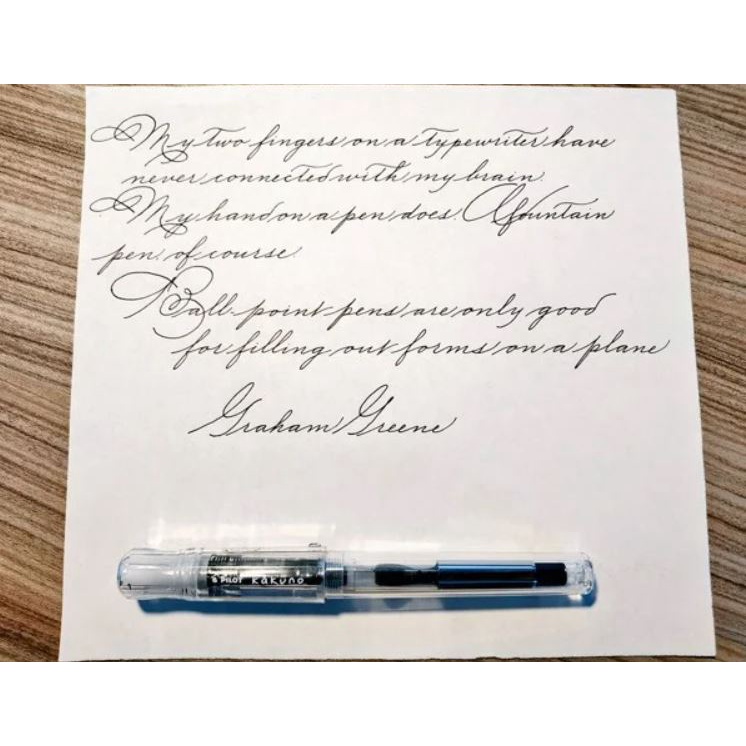 My two fingers on a typewriter have
never connected with my brain.
My hand on a pen does. A fountain
pen, of course.
Ball-point pens are only good
for filling out forms on a plane
Graham Greene
PILOT kakuno